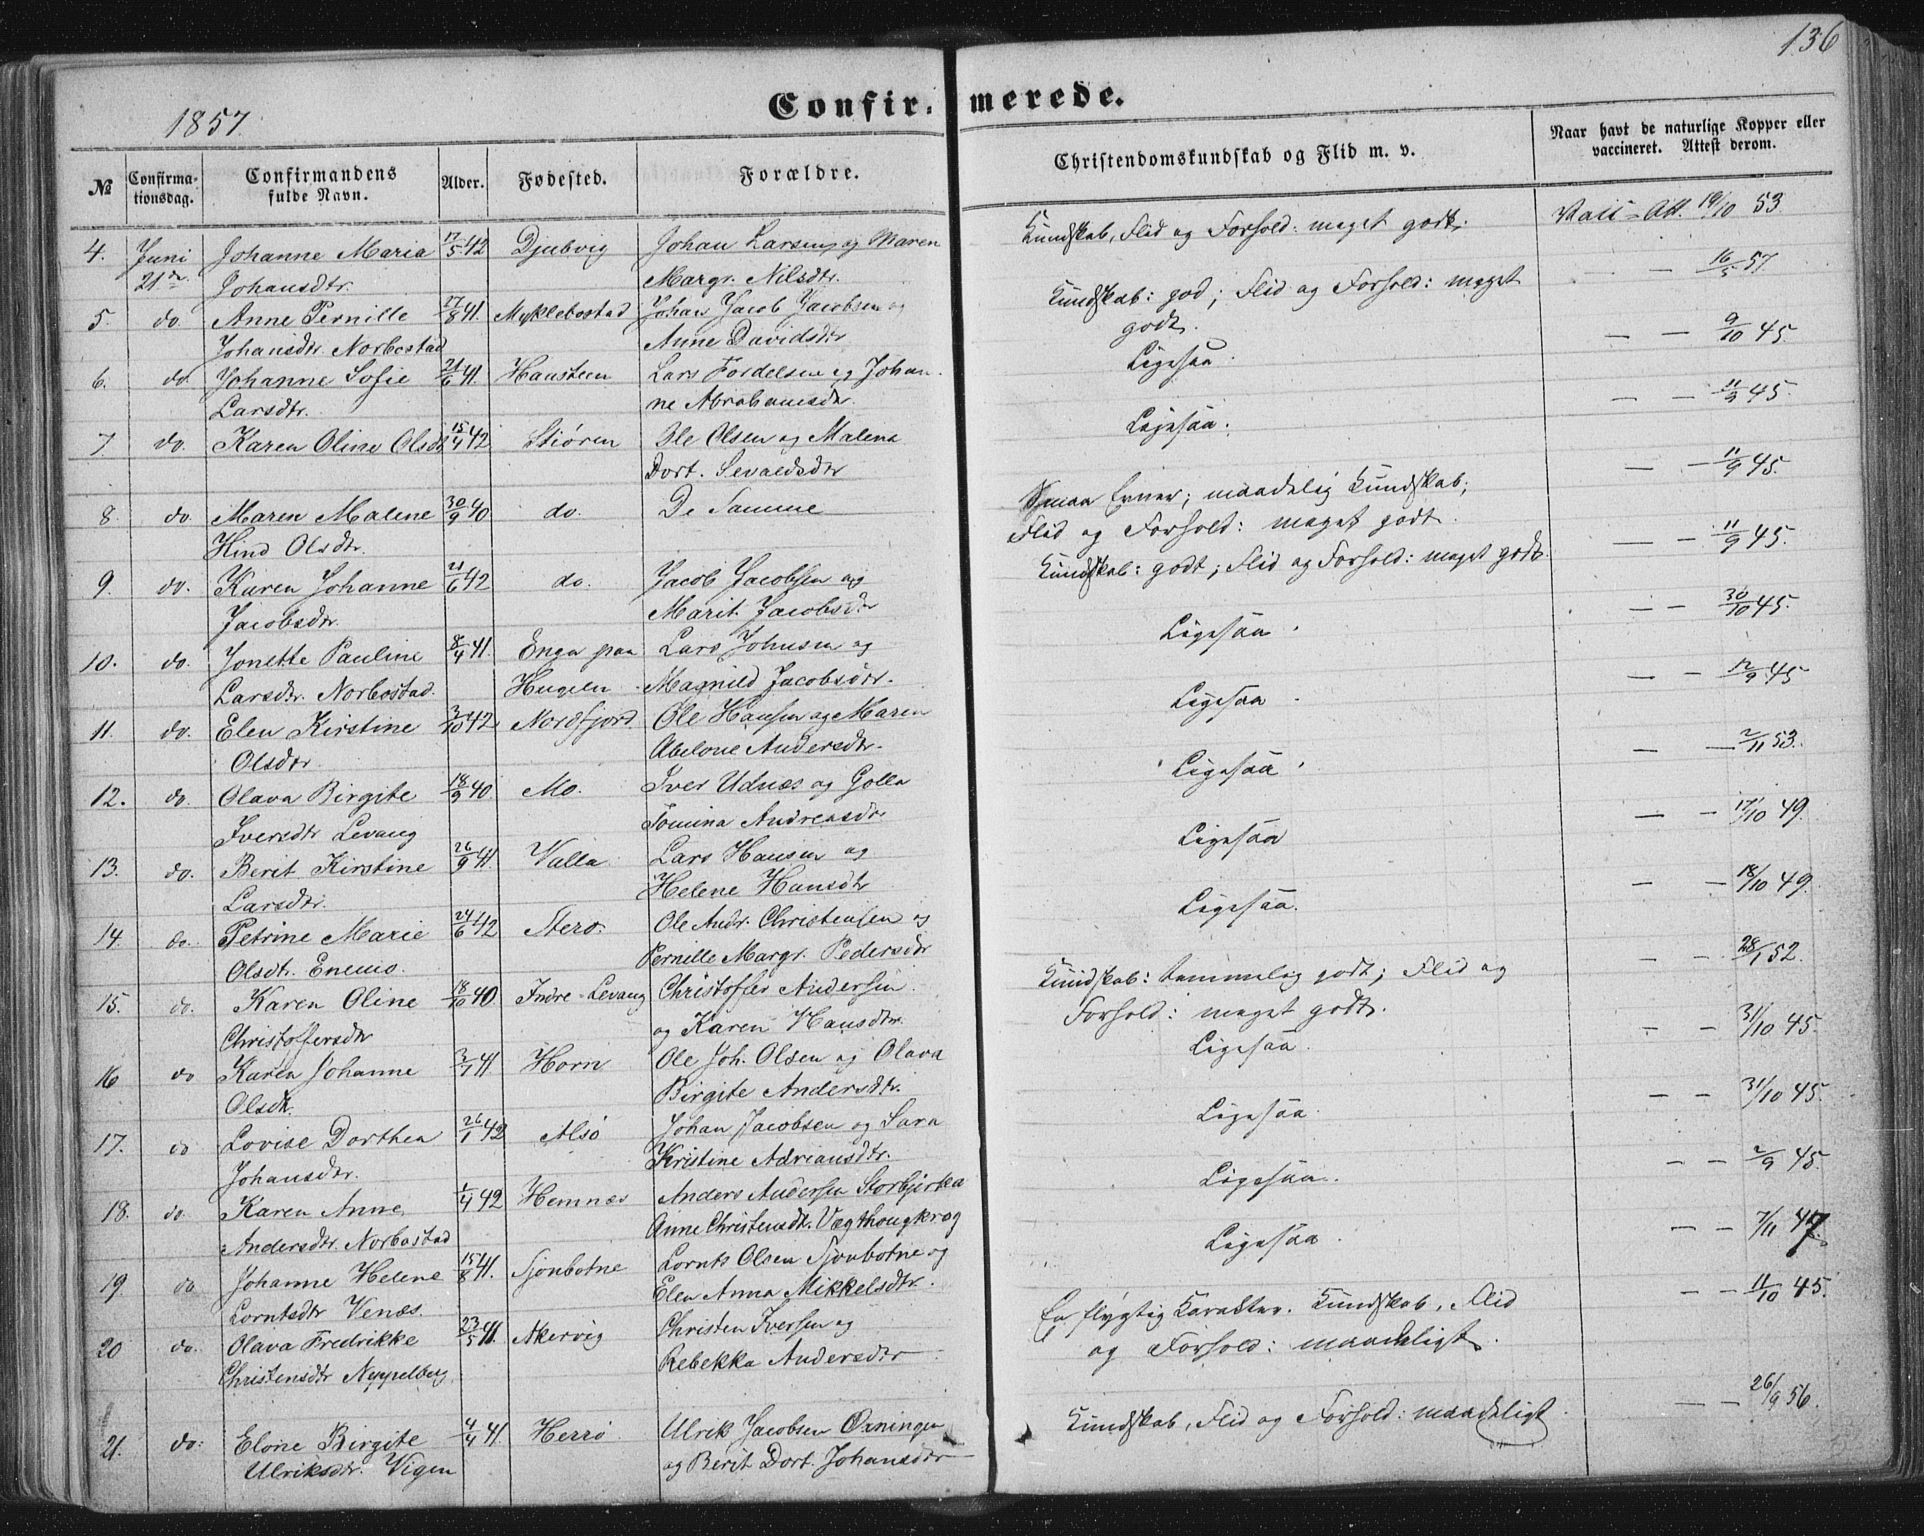 136
1857
Confir- merede.
№ Confirma-tionsdag. Confirmandens fulde Navn. Alder. Fødested. Forældre. Christendomskundskab og Flid m. v. Naar havt de naturlige Kopper eller vaccineret. Attest derom.
4. Juni Johanne Maria 17/5 42 Djubvig Johan Larsen og Maren Kundskab, Flid og Forhold: meget godt. Vacc-Att. 19/10 53.
21de Johansdtr. Margr. Nilsdtr.
5. do. Anne Pernille 27/8 41. Myklebostad Johan Jacob Jacobsen og Kundskab: god; Flid og Forhold: meget — — 16/5 57
Johansdtr. Norbostad Anne Davidsdtr godt.
6. do. Johanne Sofie 21/6 41. Haustern Lars Fordelsen og Johan- Ligesaa. — — 9/10 45.
Larsdtr. ne Abrahamsdtr.
7 do. Karen Oline Olsdtr 15/4 42 Stiøren Ole Olsen og Malena Ligesaa. — — 11/9 45.
Dort. Sevaldsdtr
8. do. Maren Malene 30/9 40 do. De Samme Smaa Evner; maadelig Kundskab; — — 11/9 45.
Hind Olsdtr. Flid og Forhold: meget godt.
9. do. Karen Johanne 21/6 42 do. Jacob Jacobsen og Kundskab: godt; Flid og Forhold: meget godt. — — 11/9 45.
Jacobsdtr Marit Jacobsdtr
10. do. Jonette Pauline 8/4 41. Enga paa Lars Johnsen og Ligesaa. — — 30/10 45.
Larsdtr. Norbostad. Hugeln Magnild Jacobsdtr.
11. do. Elen Kirstine 3/10 42 Nordfjord. Ole Hansen og Maren Ligesaa. — — 12/9 45
Olsdtr. Abelone Andersdtr.
12. do. Olava Birgite 18/9 40 Mo. Iver Udnæs og Golla Ligesaa. — — 2/11 53.
Iversdtr Levang Tomina Andreasdtr
13. do. Berit Kirstine 26/9 41. Valla Lars Hansen og Ligesaa — — 17/10 49.
Larsdtr. Helene Hansdtr
14. do. Petrine Marie 24/6 42 Stero. Ole Andr. Christensen og Ligesaa. — — 18/10 49.
Olsdtr. Enemo. Pernille Margr. Pedersdtr
15. do. Karen Oline 18/10 40. Indre-Levang Christoffer Andersen Kundskab: temmelig godt; Flid og — — 28/1 52.
Christoffersdtr og Karen Hansdtr. Forhold: meget godt.
16 do Karen Johanne 3/1 41 Horn Ole Joh. Olsen og Olava Ligesaa. — — 31/10 45.
Olsdtr. Birgite Andersdtr.
17. do Lovise Dorthea 26/1 42 Alsø Johan Jacobsen og Sara Ligesaa. — — 31/10 45.
Johansdtr. Kristine Adriansdtr.
18. do. Karen Anne 1/4 42 Hemnæs Anders Andersen Storbjerka Ligesaa. — — 2/9 45.
Andersdtr. Norbostad Anne Christensdt. Vægthougkrog
19. do. Johanne Helene 15/8 41. Sjonbotne Lornts Olsen Sjonbotne og Ligesaa. — — 7/11 47.
Lorntsdtr Venæs. Elen Anna Mikkelsdtr.
20 do. Olava Fredrikke 23/5 41. Akervig Christen Iversen og En flygtig Karakter. Kundskab, Flid — — 11/10 45.
Christensdtr Neppelberg Rebekka Andersdtr og Forhold: maadeligt.
21. do. Elone Birgite 4/4 41. Herrø Ulrik Jacobsen Oxningen Kundskab, Flid og Forhold: maadeligt. — — 26/9 56.
Ulriksdtr. Vigen og Berit Dort. Johansdtr